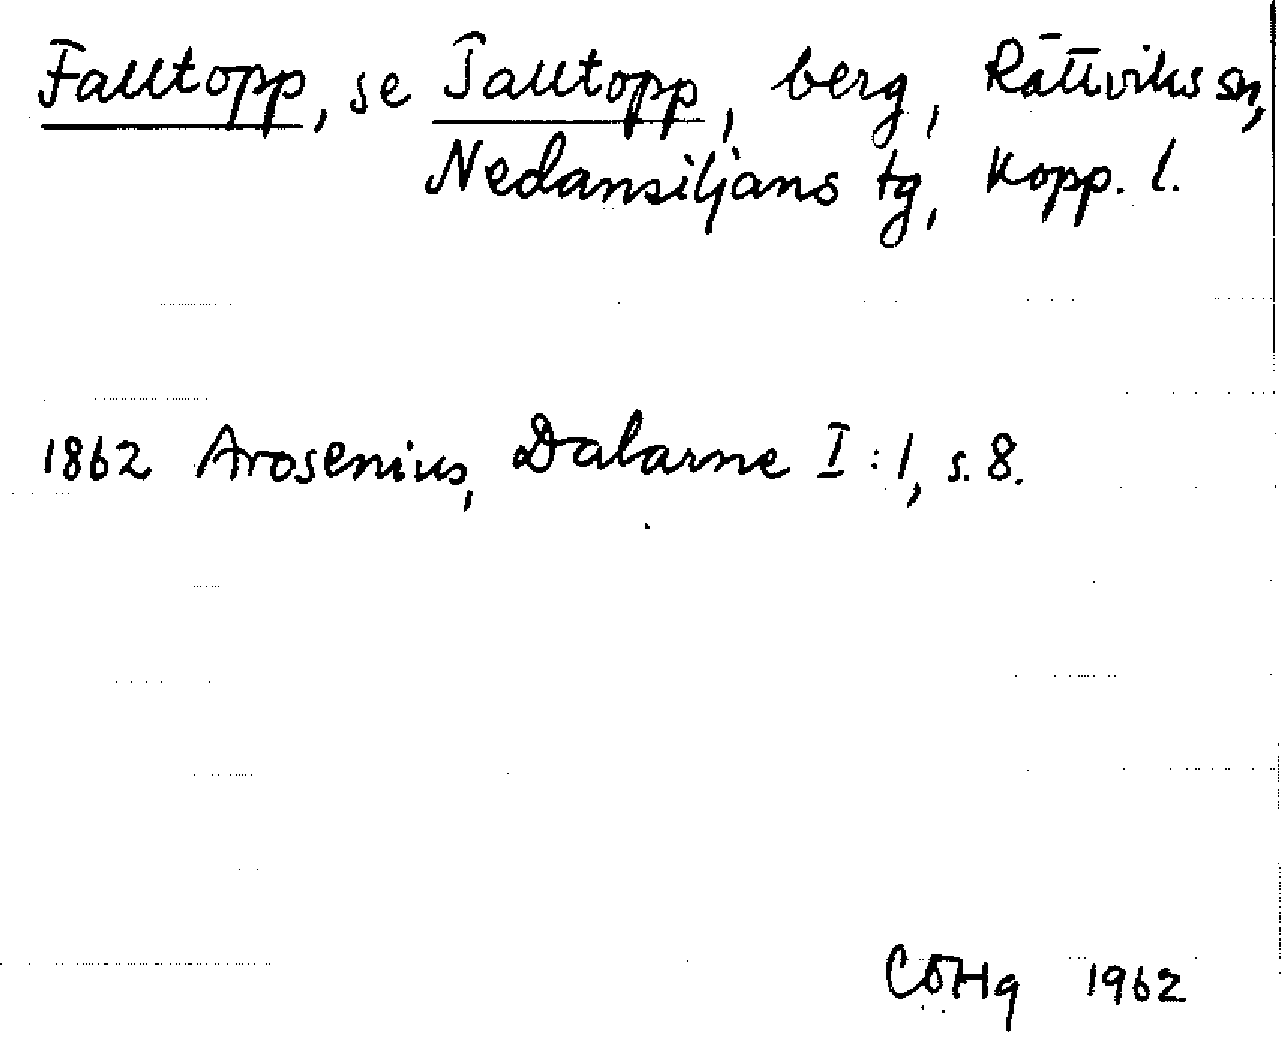 Falltopp, se Talltopp, berg, Rättviks sn,
Nedansiljans tg, Kopp. l.
1862 Arosenius, Dalarne I:1, s. 8.
1962